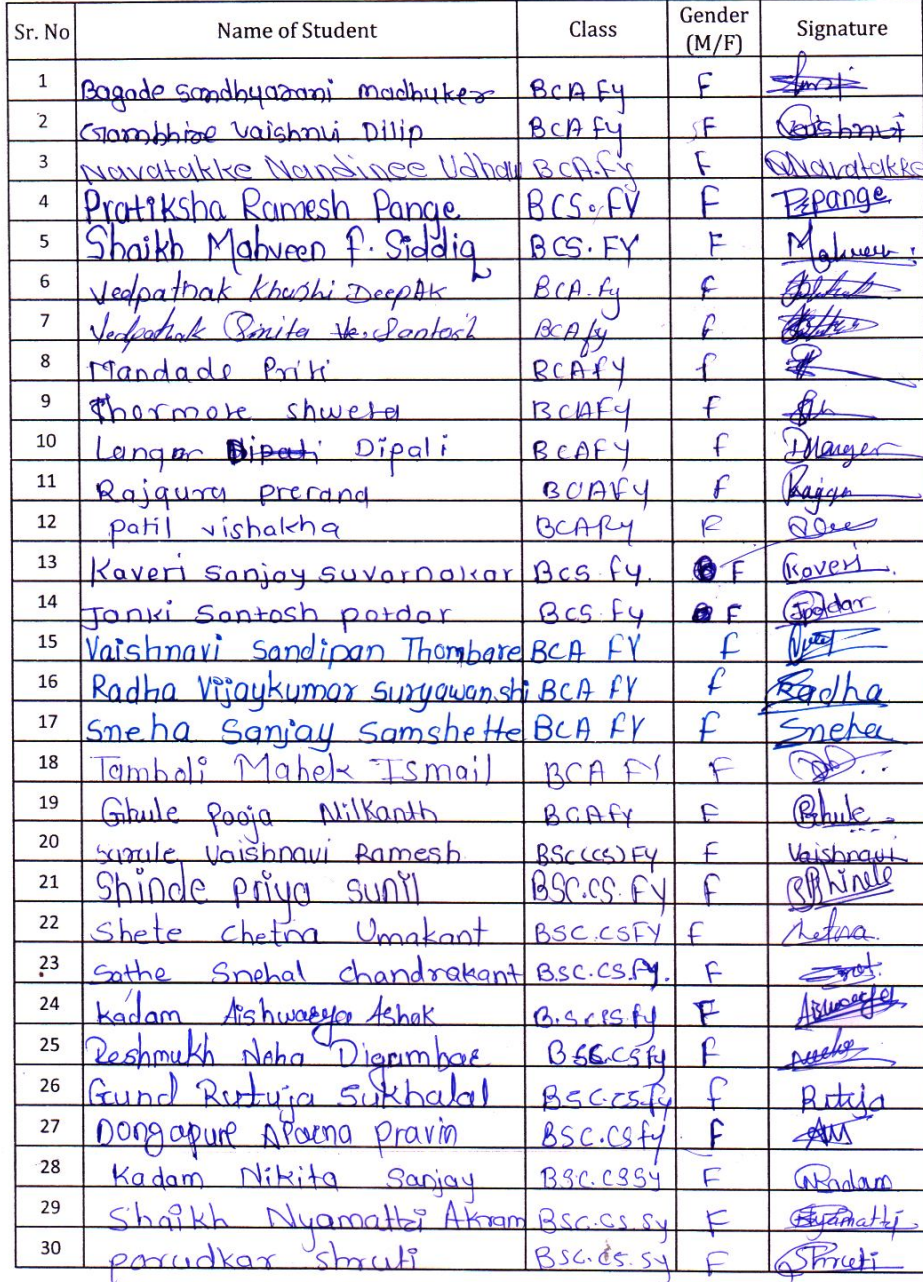 Sr. No Name of Student Class Gender (M/F) Signature
1 Bagade Sandhyarani madhuker BCA Fy F
2 Gambhire Vaishnvi Dilip BCA Fy F Vaishnvi
3 Navatakke Nandinee Udhav BCA.Fy F Navatakke
4 Pratiksha Ramesh Pange BCS. FY F Pange
5 Shaikh Mahveen F. Siddiq BCS. FY F Mahveen
6 Vedpathak Khushi DeepAk BCA.fy F
7 Vedpathak Santosh BCA fy f
8 Mandade Priti BCAFY f
9 Thormote shweta BCAFY f
10 Langar Dipali BCAFY f
11 Rajguru prerana BCAFY f
12 patil vishakha BCAFy F
13 Kaveri Sanjay suvarnakar BCS fy. F Kaveri
14 Janki Santosh potdar BCS fy F Jpotdar
15 Vaishnavi Sandipan Thombare BCA FY f
16 Radha Vijaykumar Suryawanshi BCA FY f Radha
17 Sneha Sanjay Samshette BCA FY f Sneha
18 Tamboli Mahek Ismail BCA FY F
19 Ghule Pooja Nilkanth BCAFY F Ghule
20 Vaishnavi Ramesh BSC(CS) Fy F Vaishnavi
21 Shinde priya sunil BSC.CS. FY f
22 Shete chetna Umakant BSC.CSFY f chetna
23 Sathe Snehal chandrakant B.SC.CS.Fy. F
24 kadam Aishwarya Ashok B.Sc.CS.fy F
25 Deshmukh Neha Digambar BSC.CSfy F
26 Gund Rutuja Sukhalal BSC.CS.fy f Rutuja
27 Dongapure Aparna pravin BSC.CSfy F
28 Kadam Nikita Sanjay BSC.CSSy F NKadam
29 Shaikh Nyamatbi Akram BSC.CS.Sy F
30 parudkar shruti BSC.CS.Sy F Shruti